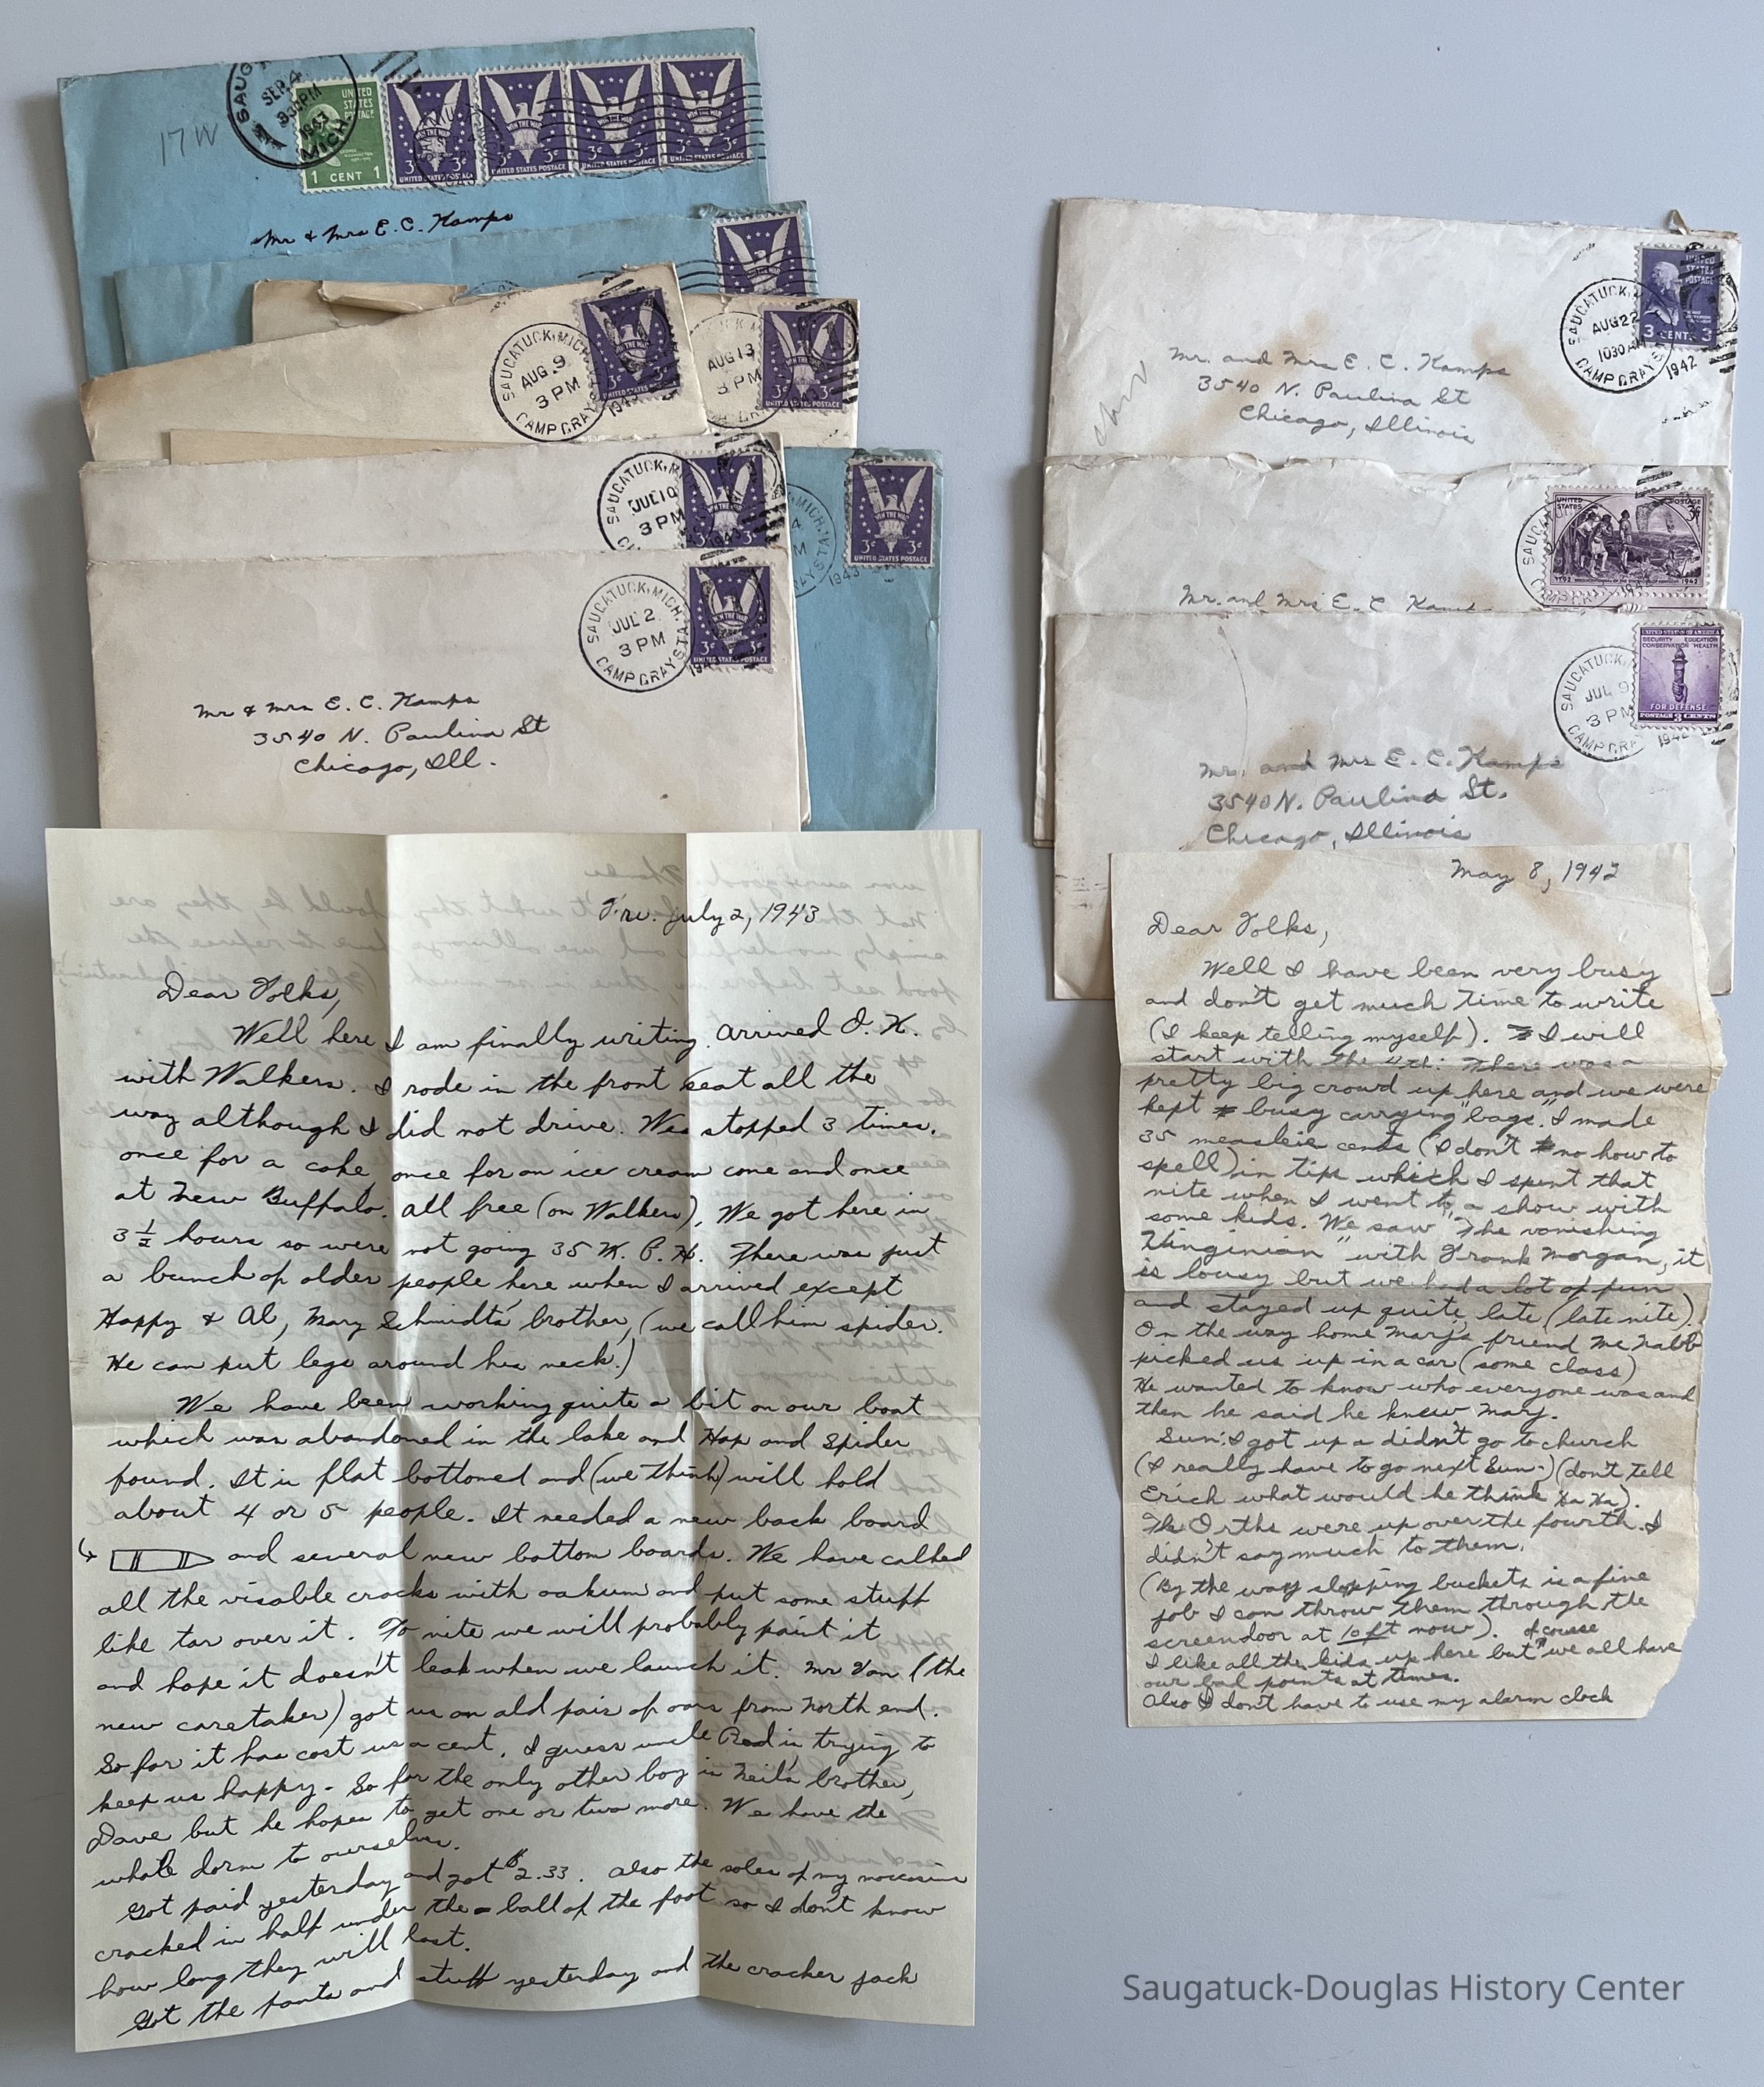 17W
SAUG
SEP 4
3 30 PM
1943
MICH
UNITED
STATES
POSTAGE
1 CENT 1
WIN THE WAR
3¢ 3¢
UNITED STATES POSTAGE
WIN THE WAR
3¢ 3¢
UNITED STATES POSTAGE
WIN THE WAR
3¢ 3¢
UNITED STATES POSTAGE
WIN THE WAR
3¢ 3¢
UNITED STATES POSTAGE
Mr & Mrs E. C. Kamps
SAUGATUCK, MICH.
AUG 9
3 PM
1943
CAMP GRAY STA.
3¢
UNITED STATES POSTAGE
AUG 13
3 PM
3¢ 3¢
UNITED STATES POSTAGE
SAUGATUCK, M
JUL 10
3 PM
1943
WIN THE WAR
3¢ 3¢
MICH.
1943
WIN THE WAR
3¢ 3¢
UNITED STATES POSTAGE
SAUGATUCK, MICH.
JUL 2
3 PM
CAMP GRAY STA.
194
3¢ 3¢
UNITED STATES POSTAGE
Mr & Mrs E. C. Kamps
3540 N. Paulina St
Chicago, Ill.
Fri. July 2, 1943
Dear Folks,
Well here I am finally writing. Arrived O. K.
with Walkers. I rode in the front seat all the
way although I did not drive. We stopped 3 times.
once for a coke, once for an ice cream cone and once
at New Buffalo. All free (on Walkers). We got here in
3 1/2 hours so were not going 35 M. P. H. There was just
a bunch of older people here when I arrived except
Happy & Al, Mary Schmidts' brother, (we call him spider.
He can put legs around his neck.)
We have been working quite a bit on our boat
which was abandoned in the lake and Hap and Spider
found. It is flat bottomed and (we think) will hold
about 4 or 5 people. It needed a new back board
and several new bottom boards. We have calked
all the visable cracks with oakum and put some stuff
like tar over it. To nite we will probably paint it
and hope it doesn't leak when we launch it. Mr Van (the
new caretaker) got us an old pair of oars from North end.
So far it has cost us a cent. I guess uncle Rod is trying to
keep us happy - So far the only other boy is Neil's brother,
Dave but he hopes to get one or two more. We have the
whole dorm to ourselves.
Got paid yesterday and got $2.33. Also the soles of my moccasins
cracked in half under the ball of the foot so I don't know
how long they will last.
Got the pants and stuff yesterday and the cracker jack
SAUGATUCK, MICH.
AUG 22
10 30 AM
1942
CAMP GRAY STA.
UNITED
STATES
POSTAGE
3 CENTS 3
Mr. and Mrs E. C. Kamps
3540 N. Paulina St
Chicago, Illinois
UNITED
STATES
POSTAGE
3¢
1792 1942
SAUGATUCK
CAMP GRAY
Mr. and Mrs E. C Kamps
SAUGATUCK
JUL 9
3 PM
1942
CAMP GRA
UNITED STATES OF AMERICA
SECURITY EDUCATION
CONSERVATION HEALTH
FOR DEFENSE
POSTAGE 3 CENTS
Mr. and Mrs E. C. Kamps
3540 N. Paulina St.
Chicago, Illinois
May 8, 1942
Dear Folks,
Well I have been very busy
and don't get much time to write
(I keep telling myself). I will
start with the 4th: There was a
pretty big crowd up here and we were
kept busy carrying "bags." I made
35 measleie cents (I don't no how to
spell) in tips which I spent that
nite when I went to a show with
some kids. We saw "The vanishing
Virginian" with Frank Morgan, it
is lousy but we had a lot of fun
and stayed up quite late (late nite).
On the way home Marj's friend Mc Nabb
picked us up in a car (some class)
He wanted to know who everyone was and
then he said he knew Mary.
Sun: I got up a didn't go to church
(I really have to go next Sun.) (don't tell
Erich what would he think Ha Ha).
The Orths were up over the fourth. I
didn't say much to them.
(By the way slopping buckets is a fine
job I can throw them through the
screendoor at 10 ft now).
I like all the kids up here but of course we all have
our bad points at times.
Also I don't have to use my alarm clock
Saugatuck-Douglas History Center